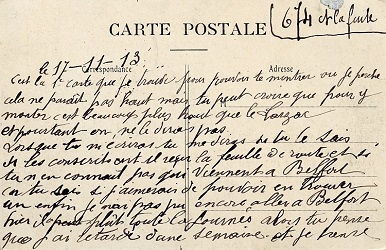 674 et la suite
CARTE POSTALE
Correspondance
Adresse
le 17-11-13
C'est la 1e carte que je trouve pour pouvoir te montrer ou je perche
cela ne parait pas haut mais tu peut croire que pour y
monter c'est beaucoup plus haut que le Larzac
et pourtant on ne le dirais pas
Lorsque tu m'ecriras tu me diras si tu le sais
si les conscrits ont reçu la feuille de route et si
tu n'en connait pas qui viennent a Belfort
car tu sais si j'aimerais de pouvoir en trouver
un enfin je n'ai pas pu encore aller a Belfort
hier il a plut toute la journée alors tu pense
que j'ai retardé d'une semaine et je pense